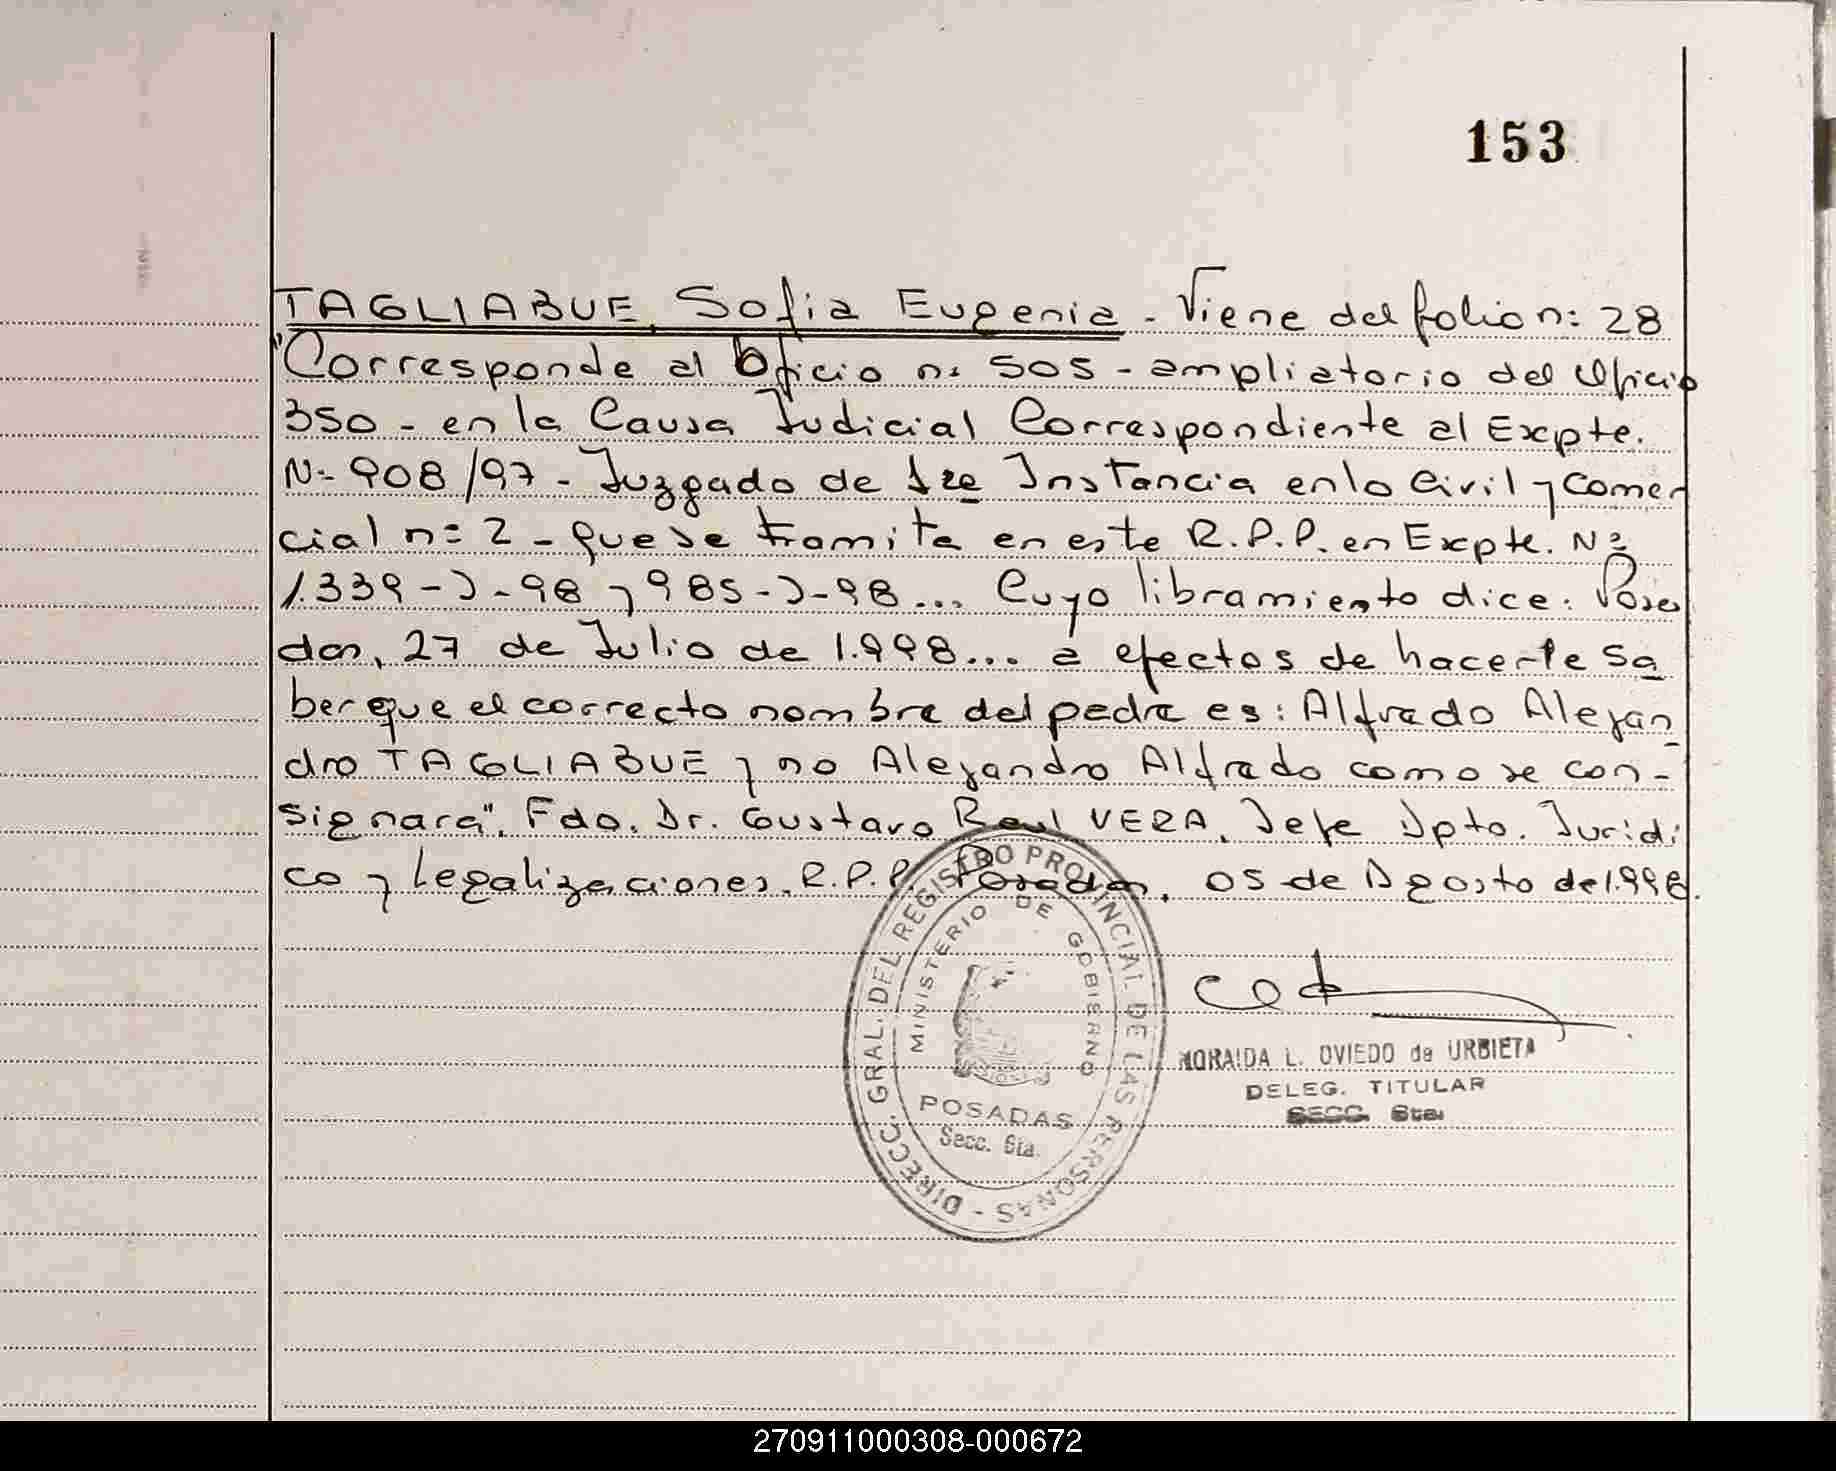 153
TAGLIABUE, Sofia Eugenia - Viene del folio n: 28
"Corresponde al Oficio n: 505 - ampliatorio del Oficio
350 - en la Causa Judicial Correspondiente al Expte.
N: 908/97 - Juzgado de 1ra Instancia en lo Civil y Comer
cial n: 2 - que se tramita en este R.P.P. en Expte. Nº
1.339-J-98 y 985-J-98... Cuyo libramiento dice: Posa
das, 27 de Julio de 1.998... a efectos de hacerle sa
ber que el correcto nombre del padre es: Alfredo Alejan
dro TAGLIABUE y no Alejandro Alfredo como se con-
signara". Fdo. Dr. Gustavo Raul VERA, Jefe Dpto. Juridi
co y Legalizaciones. R.P.P. Posadas, 05 de Agosto de 1.998.
DIRECC. GRAL. DEL REGISTRO PROVINCIAL DE LAS PERSONAS -
MINISTERIO DE GOBIERNO
POSADAS
Secc. 6ta.
NORAIDA L. OVIEDO de URBIETA
DELEG. TITULAR
SECC. 6ta.
270911000308-000672